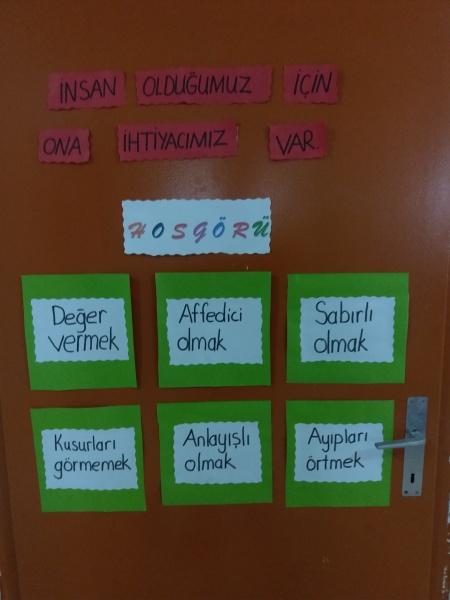 İNSAN OLDUĞUMUZ İÇİN
ONA İHTİYACIMIZ VAR.
HOSGÖRÜ
Değer
vermek
Affedici
olmak
Sabırlı
olmak
Kusurları
görmemek
Anlayışlı
olmak
Ayıpları
örtmek